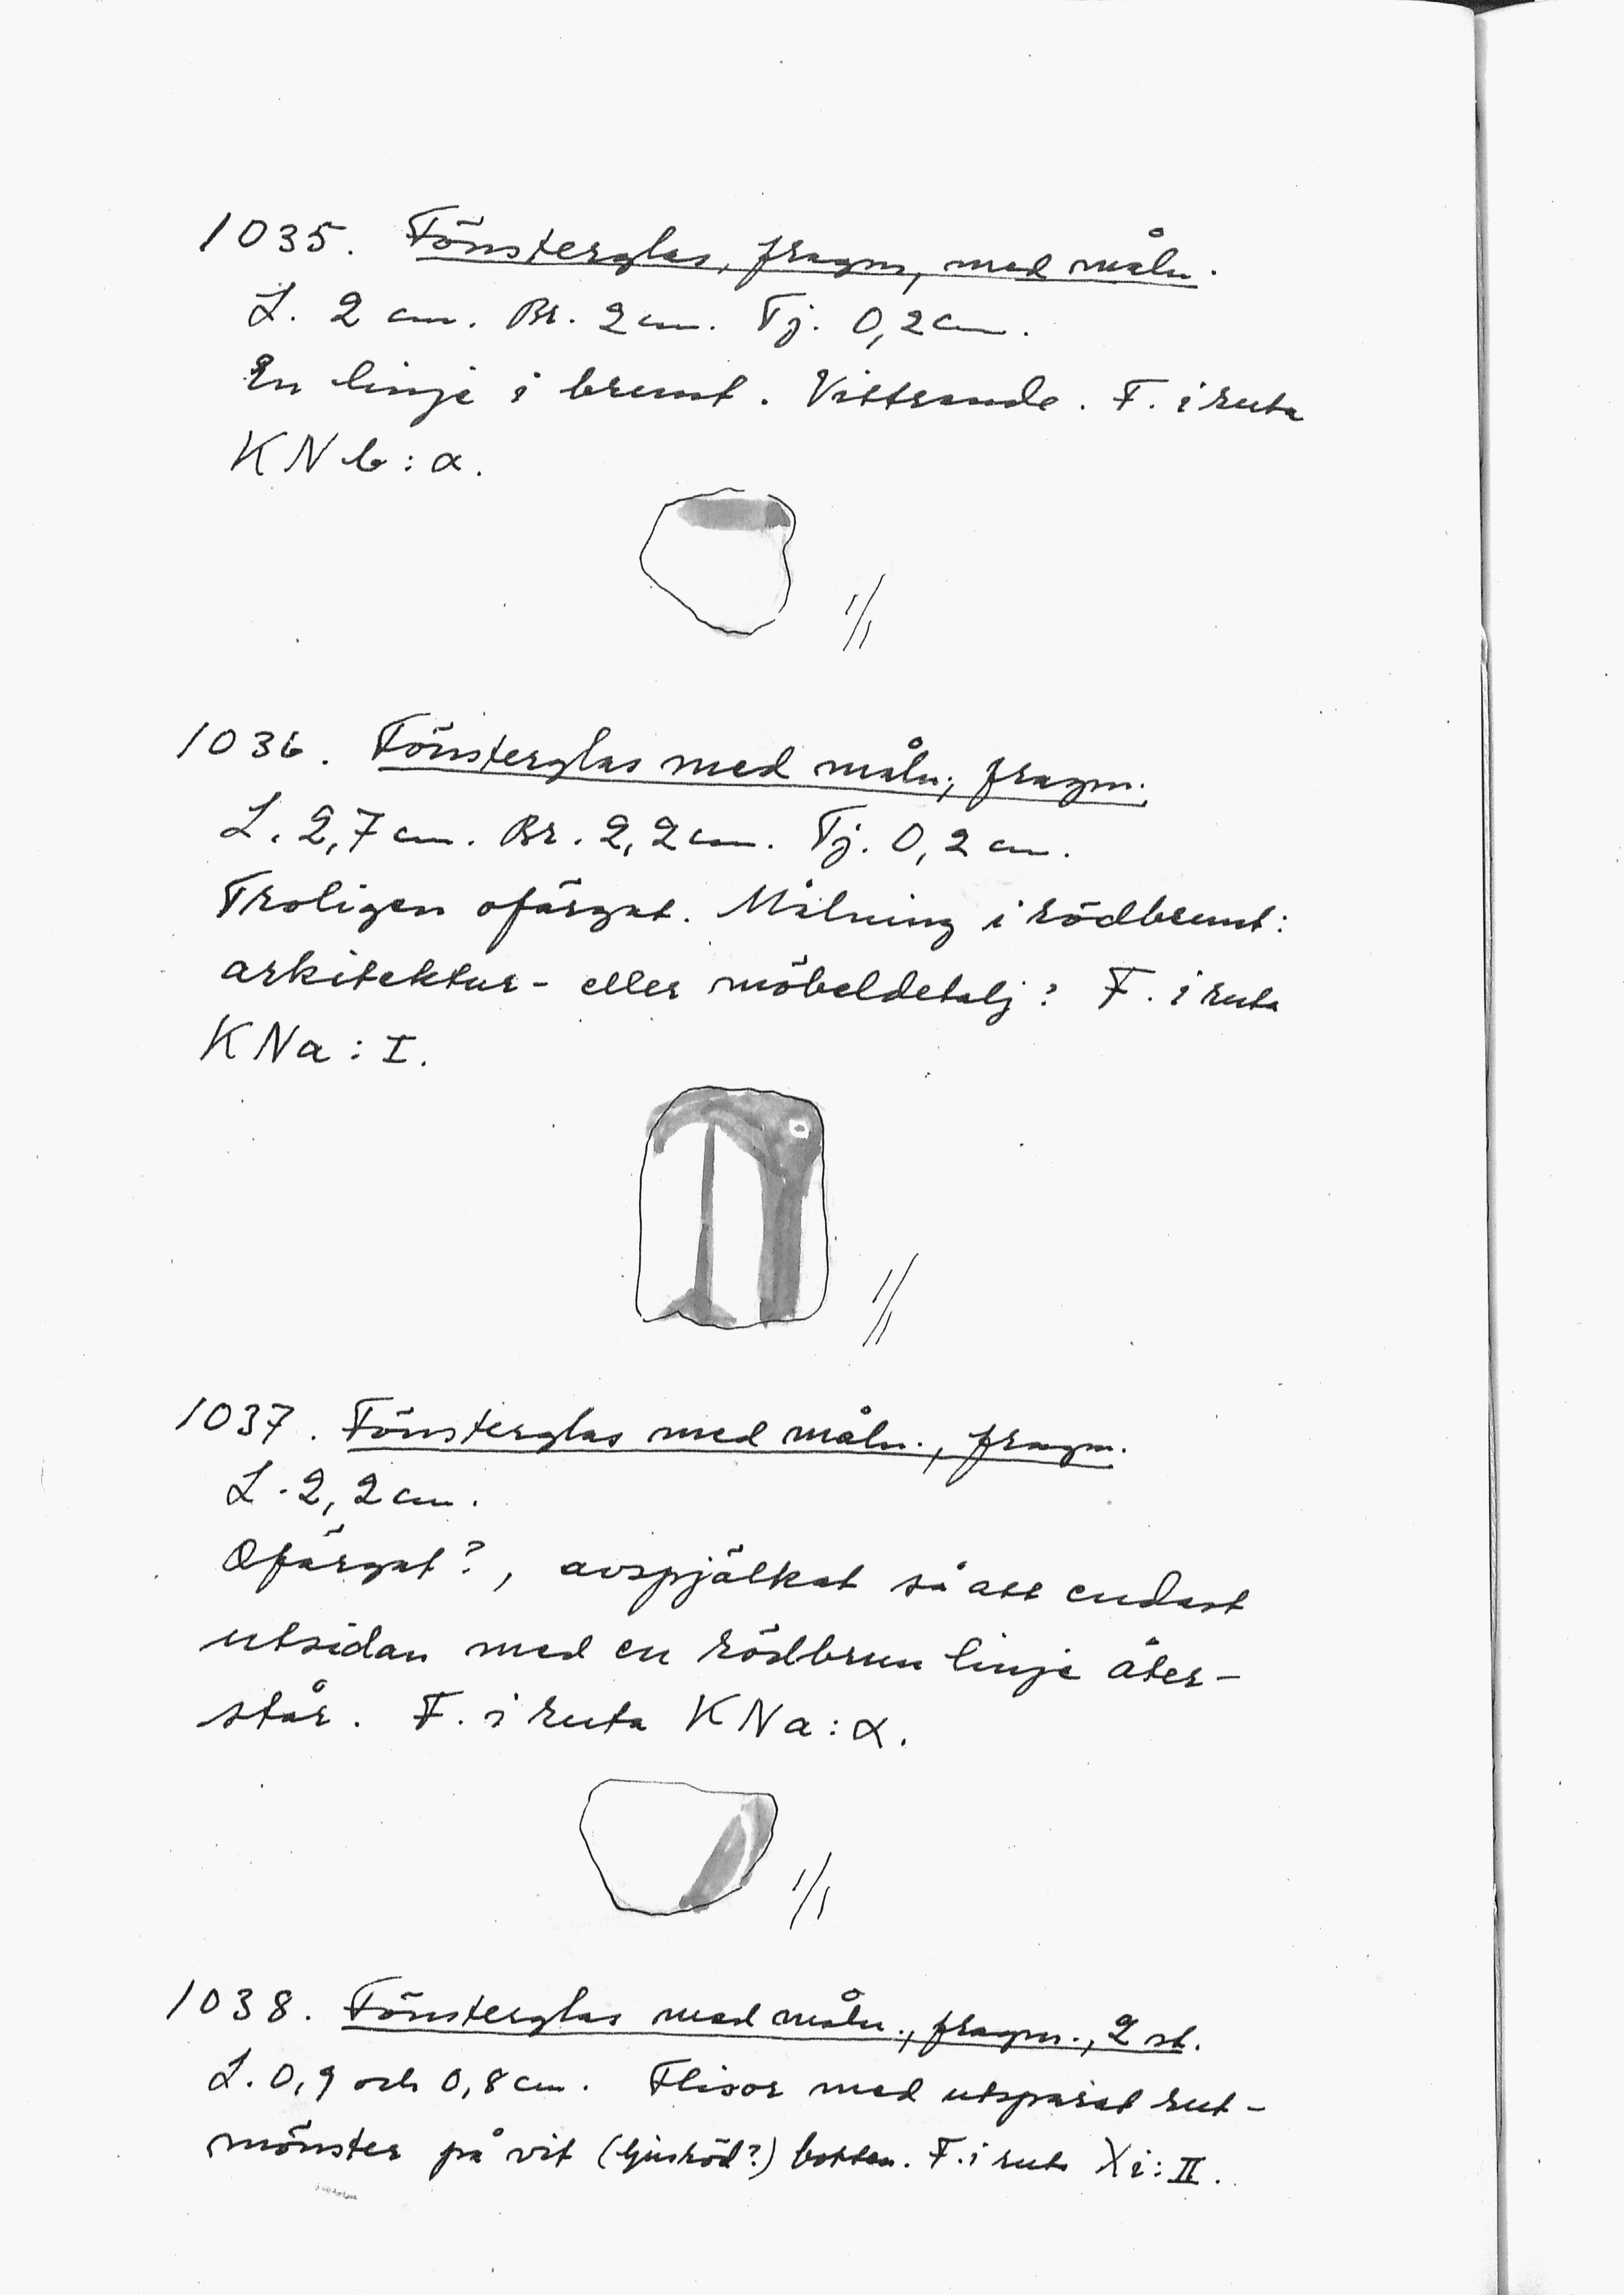 1035. Fönsterglas, fragm, med måln.
L. 2 cm. Br. 2 cm. Tj. 0,2 cm.
En linje i brunt. Vittrande. F. i ruta
KN b : α.
1/1
1036. Fönsterglas med måln, fragm.
L. 2,7 cm. Br. 2,2 cm. Tj. 0,2 cm.
Troligen ofärgat. Målning i rödbrunt:
arkitektur- eller möbeldetalj? F. i ruta
KNa : I.
1/1
1037. Fönsterglas med måln., fragm.
L. 2,2 cm.
Ofärgat?, avspjälkat så att endast
utsidan med en rödbrun linje åter-
står. F. i ruta KNa : α.
1/1
1038. Fönsterglas med måln., fragm., 2 st.
L. 0,9 och 0,8 cm. Flisor med utsparat rut-
mönster på vit (ljusröd?) botten. F. i ruta Xi : II.